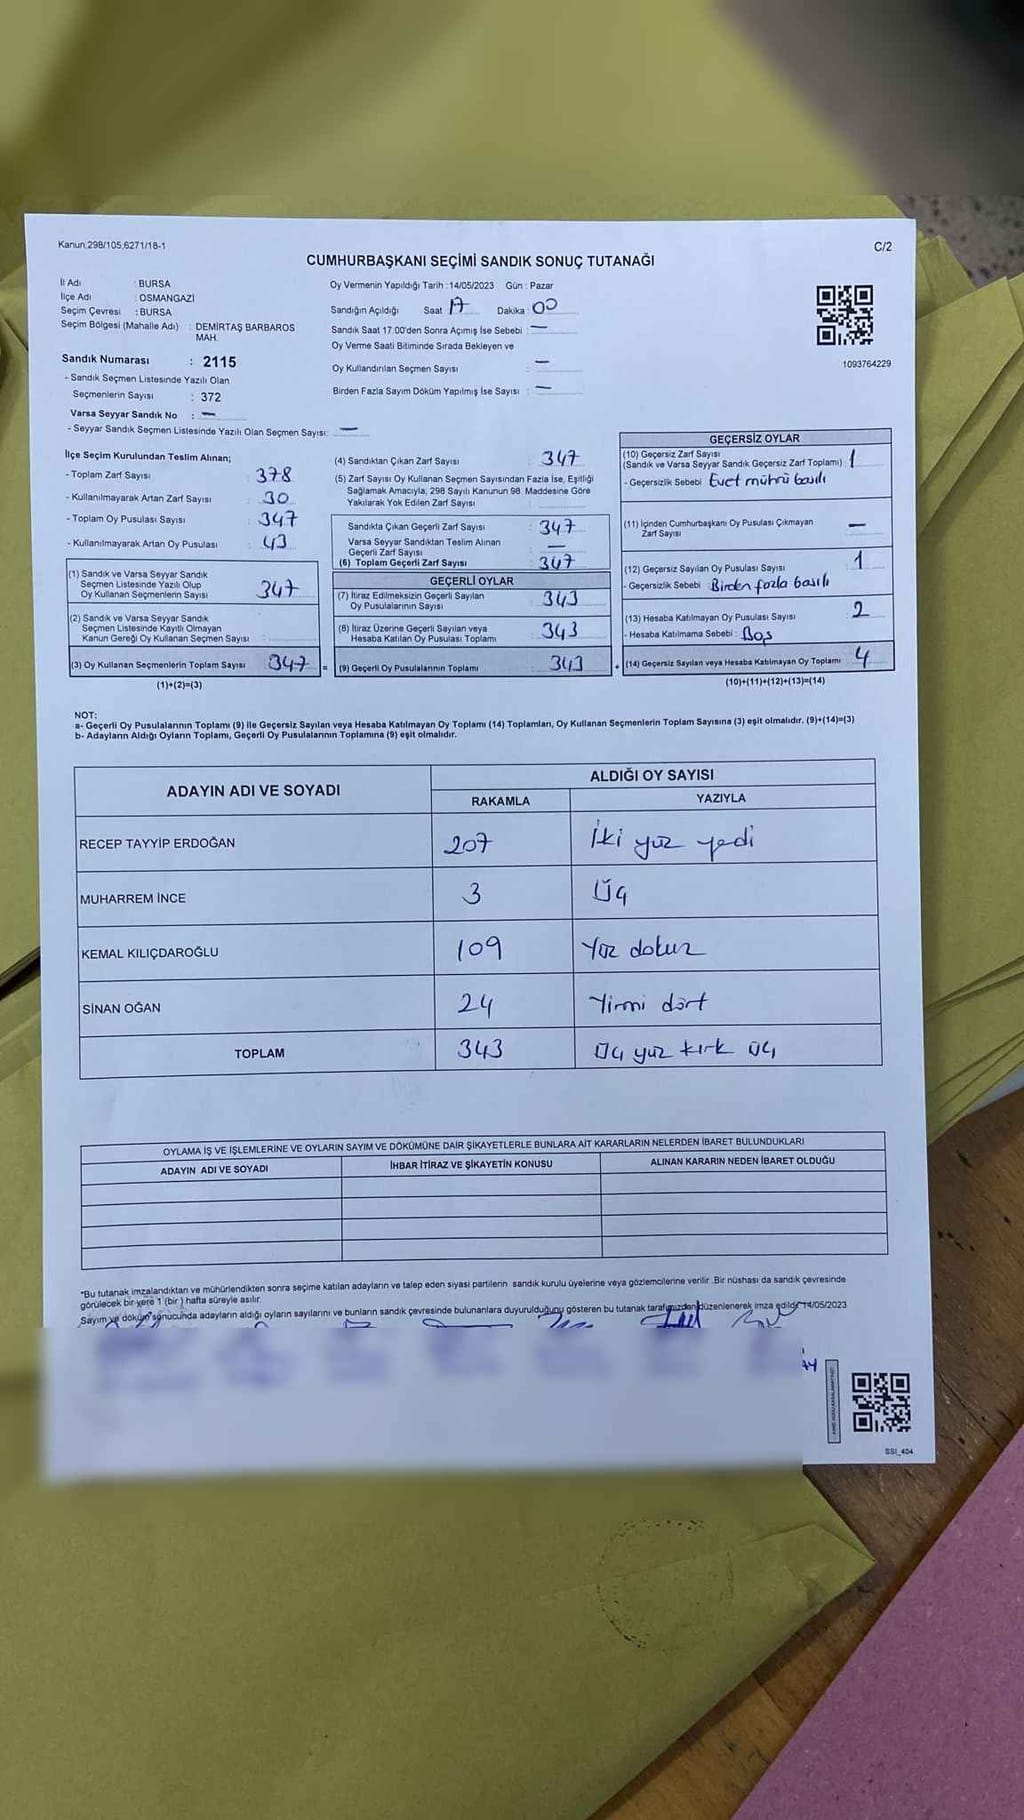 Kanun:298/105,6271/18-1
C/2
CUMHURBAŞKANI SEÇİMİ SANDIK SONUÇ TUTANAĞI
İl Adı : BURSA
İlçe Adı : OSMANGAZİ
Seçim Çevresi : BURSA
Seçim Bölgesi (Mahalle Adı) : DEMİRTAŞ BARBAROS
MAH.
Sandık Numarası : 2115
- Sandık Seçmen Listesinde Yazılı Olan
Seçmenlerin Sayısı : 372
Varsa Seyyar Sandık No : —
- Seyyar Sandık Seçmen Listesinde Yazılı Olan Seçmen Sayısı: —
Oy Vermenin Yapıldığı Tarih : 14/05/2023 Gün : Pazar
Sandığın Açıldığı Saat 17 Dakika : 00
Sandık Saat 17:00'den Sonra Açımış İse Sebebi : —
Oy Verme Saati Bitiminde Sırada Bekleyen ve
Oy Kullandırılan Seçmen Sayısı : —
Birden Fazla Sayım Döküm Yapılmış İse Sayısı : —
1093764229
İlçe Seçim Kurulundan Teslim Alınan;
- Toplam Zarf Sayısı : 378
- Kullanılmayarak Artan Zarf Sayısı : 30
- Toplam Oy Pusulası Sayısı : 347
- Kullanılmayarak Artan Oy Pusulası : 43
(1) Sandık ve Varsa Seyyar Sandık
Seçmen Listesinde Yazılı Olup
Oy Kullanan Seçmenlerin Sayısı : 347
(2) Sandık ve Varsa Seyyar Sandık
Seçmen Listesinde Kayıtlı Olmayan
Kanun Gereği Oy Kullanan Seçmen Sayısı :
(3) Oy Kullanan Seçmenlerin Toplam Sayısı : 347 =
(1)+(2)=(3)
(4) Sandıktan Çıkan Zarf Sayısı : 347
(5) Zarf Sayısı Oy Kullanan Seçmen Sayısından Fazla İse, Eşitliği
Sağlamak Amacıyla; 298 Sayılı Kanunun 98. Maddesine Göre
Yakılarak Yok Edilen Zarf Sayısı :
Sandıkta Çıkan Geçerli Zarf Sayısı : 347
Varsa Seyyar Sandıktan Teslim Alınan
Geçerli Zarf Sayısı : —
(6) Toplam Geçerli Zarf Sayısı : 347
GEÇERLİ OYLAR
(7) İtiraz Edilmeksizin Geçerli Sayılan
Oy Pusulalarının Sayısı : 343
(8) İtiraz Üzerine Geçerli Sayılan veya
Hesaba Katılan Oy Pusulası Toplamı : 343
(9) Geçerli Oy Pusulalarının Toplamı : 343 +
GEÇERSİZ OYLAR
(10) Geçersiz Zarf Sayısı
(Sandık ve Varsa Seyyar Sandık Geçersiz Zarf Toplamı) 1
- Geçersizlik Sebebi : Evet mührü basılı
(11) İçinden Cumhurbaşkanı Oy Pusulası Çıkmayan
Zarf Sayısı —
(12) Geçersiz Sayılan Oy Pusulası Sayısı : 1
- Geçersizlik Sebebi : Birden fazla basılı
(13) Hesaba Katılmayan Oy Pusulası Sayısı : 2
- Hesaba Katılmama Sebebi : Boş
(14) Geçersiz Sayılan veya Hesaba Katılmayan Oy Toplamı : 4
(10)+(11)+(12)+(13)=(14)
NOT:
a- Geçerli Oy Pusulalarının Toplamı (9) ile Geçersiz Sayılan veya Hesaba Katılmayan Oy Toplamı (14) Toplamları, Oy Kullanan Seçmenlerin Toplam Sayısına (3) eşit olmalıdır. (9)+(14)=(3)
b- Adayların Aldığı Oyların Toplamı, Geçerli Oy Pusulalarının Toplamına (9) eşit olmalıdır.
ADAYIN ADI VE SOYADI
ALDIĞI OY SAYISI
RAKAMLA YAZIYLA
RECEP TAYYİP ERDOĞAN 207 İki yüz yedi
MUHARREM İNCE 3 Üç
KEMAL KILIÇDAROĞLU 109 Yüz dokuz
SİNAN OĞAN 24 Yirmi dört
TOPLAM 343 Üç yüz kırk üç
OYLAMA İŞ VE İŞLEMLERİNE VE OYLARIN SAYIM VE DÖKÜMÜNE DAİR ŞİKAYETLERLE BUNLARA AİT KARARLARIN NELERDEN İBARET BULUNDUKLARI
ADAYIN ADI VE SOYADI İHBAR İTİRAZ VE ŞİKAYETİN KONUSU ALINAN KARARIN NEDEN İBARET OLDUĞU
*Bu tutanak imzalandıktan ve mühürlendikten sonra seçime katılan adayların ve talep eden siyasi partilerin sandık kurulu üyelerine veya gözlemcilerine verilir .Bir nüshası da sandık çevresinde
görülecek bir yere 1 (bir ) hafta süreyle asılır.
Sayım ve döküm sonucunda adayların aldığı oyların sayılarını ve bunların sandık çevresinde bulunanlara duyurulduğunu gösteren bu tutanak tarafımızdan düzenlenerek imza edildi. 14/05/2023
SSI_404